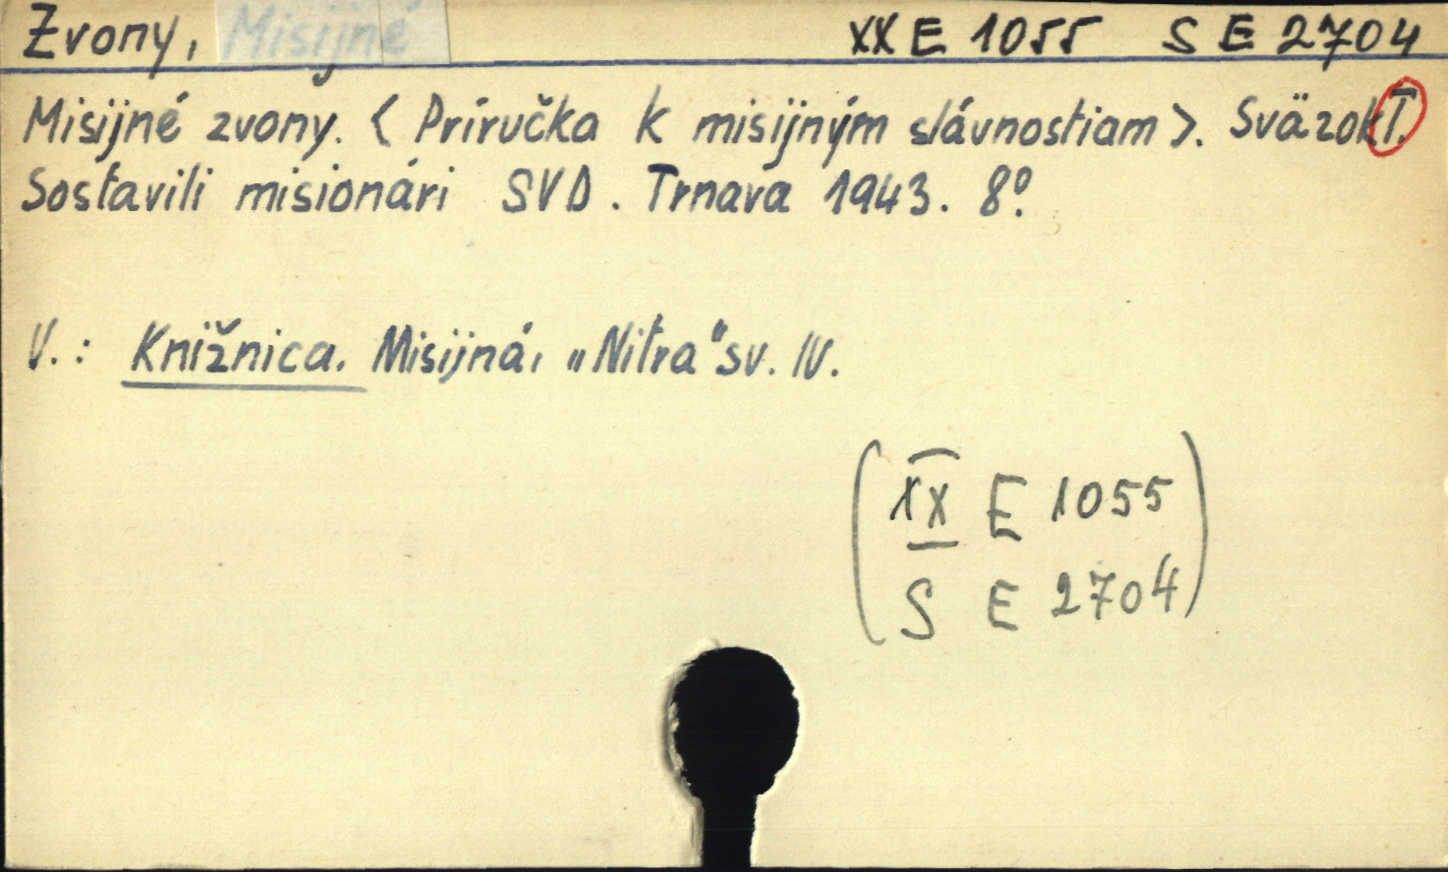 Zvony, Misijné XX E 1055 S E 2704
Misijné zvony. < Príručka k misijným slávnostiam >. Sväzok I.
Sostavili misionári SVD. Trnava 1943. 8º.
V.: Knižnica. Misijná, „Nitra" sv. IV.
( XX E 1055
S E 2704 )